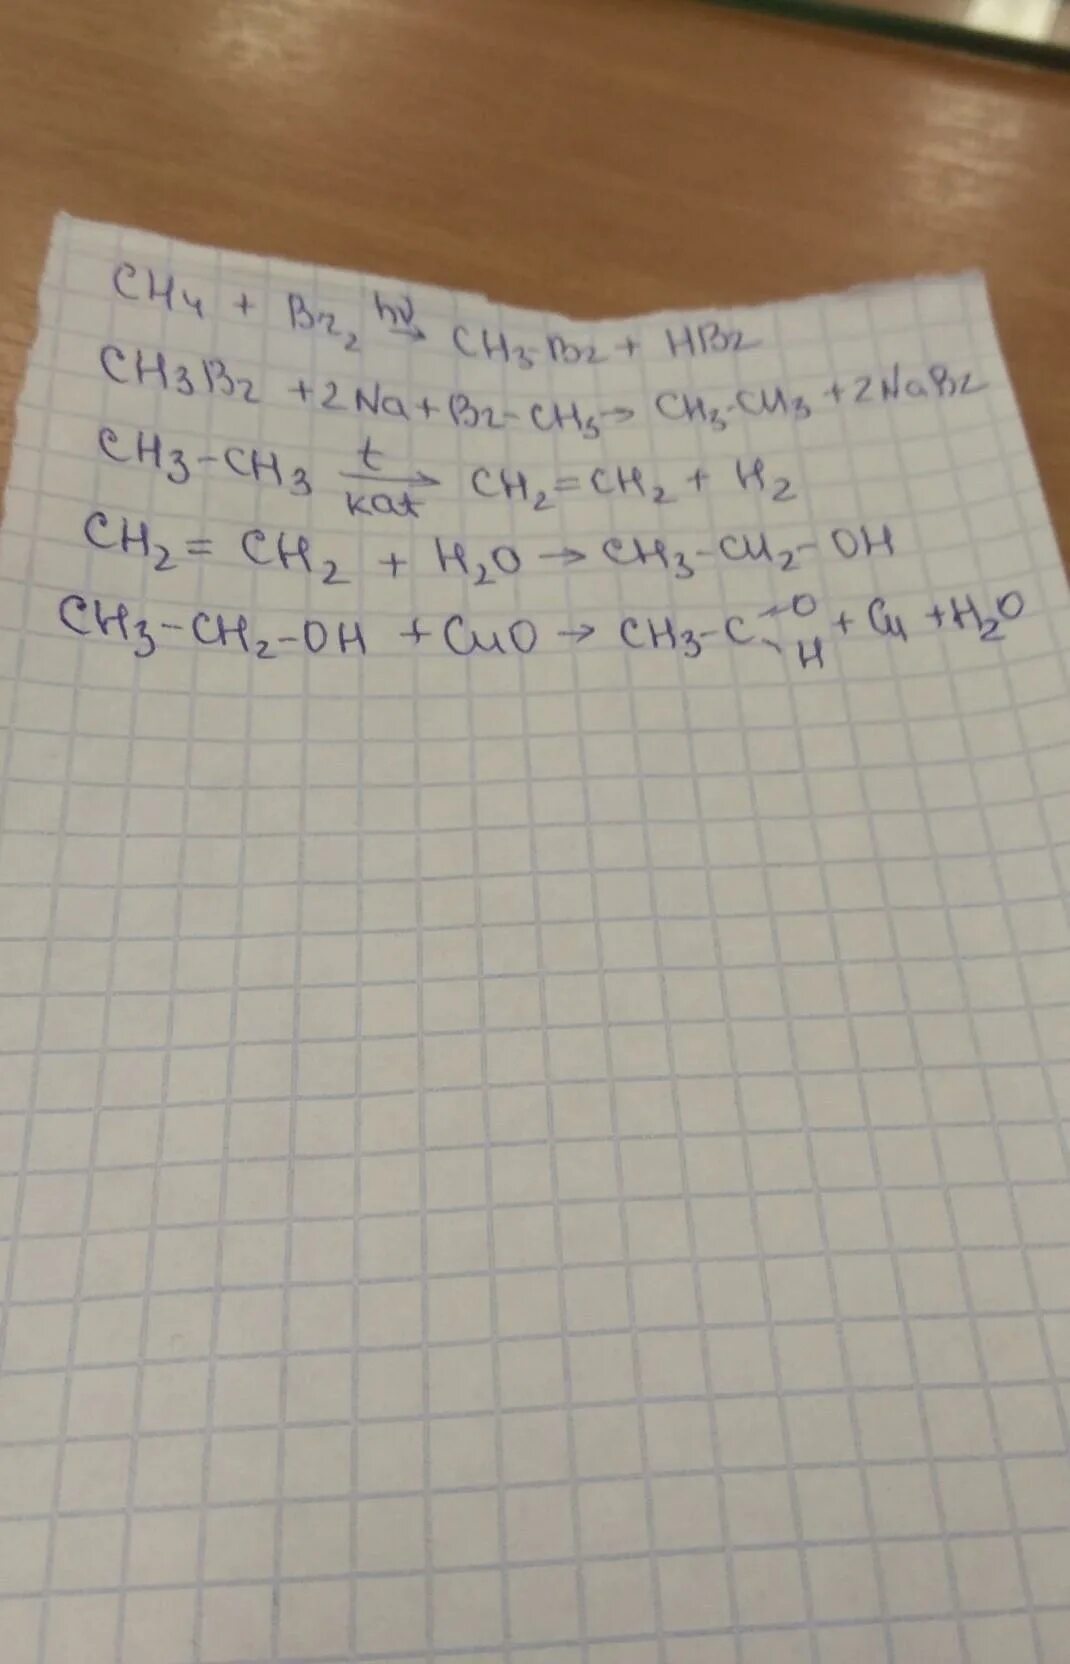 CH4 + Br2 hν → CH3-Br + HBr
CH3Br + 2Na + Br-CH3 → CH3-CH3 + 2NaBr
CH3-CH3 t kat → CH2=CH2 + H2
CH2=CH2 + H2O → CH3-CH2-OH
CH3-CH2-OH + CuO → CH3-C=O-H + Cu + H2O